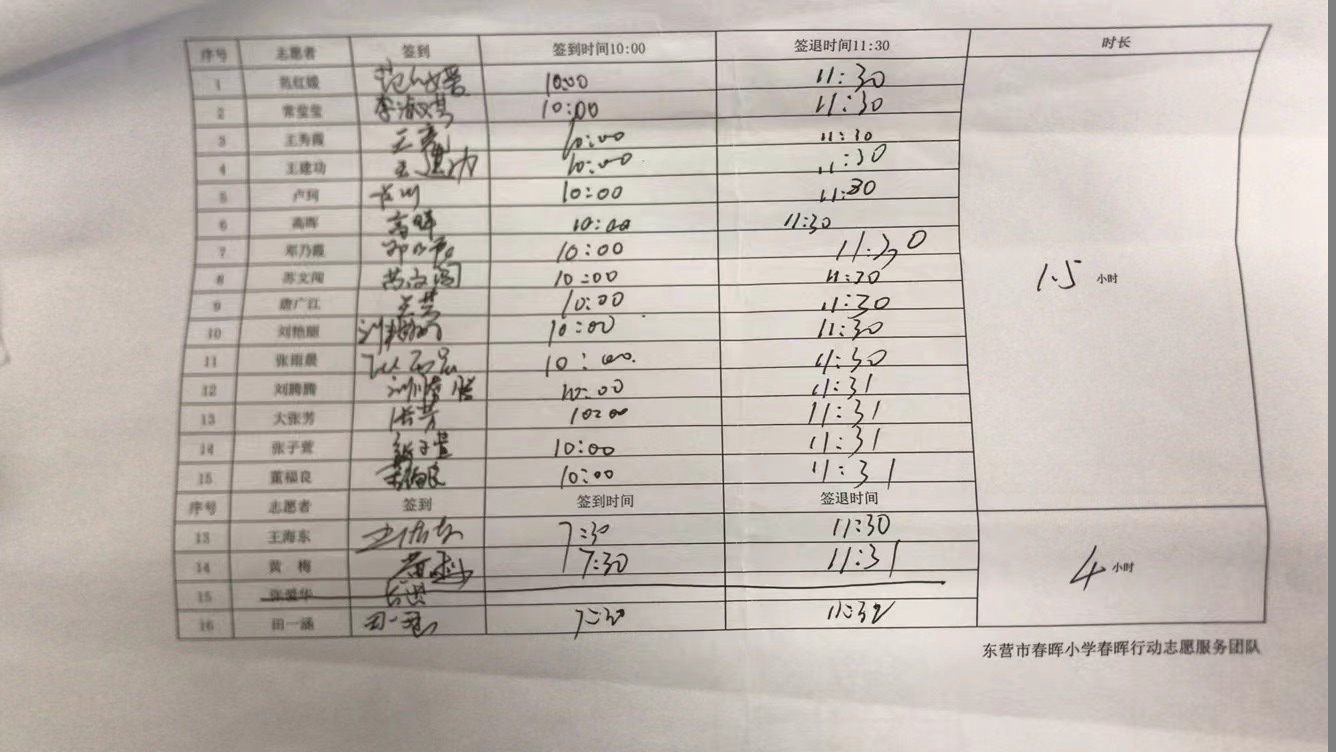 序号 志愿者 签到 签到时间10:00 签退时间11:30 时长
1 范红媛 10:00 11:30
2 常莹莹 李淑琪 10:00 11:30
3 王秀霞 10:00 11:30
4 王建功 王建功 10:00 11:30
5 卢珂 10:00 11:30
6 高晖 高晖 10:00 11:30
7 邓乃霞 10:00 11:30
8 苏文闯 苏文闯 10:00 11:30 1.5 小时
9 唐广江 10:00 11:30
10 刘艳丽 10:00 11:30
11 张雨晨 10:00 11:30
12 刘腾腾 刘腾腾 10:00 11:31
13 大张芳 张芳 10:00 11:31
14 张子萱 张子萱 10:00 11:31
15 董福良 10:00 11:31
序号 志愿者 签到 签到时间 签退时间
13 王海东 7:30 11:30
14 黄 梅 黄梅 7:30 11:31 4 小时
15 张爱华
16 田一涵 7:30 11:32
东营市春晖小学春晖行动志愿服务团队